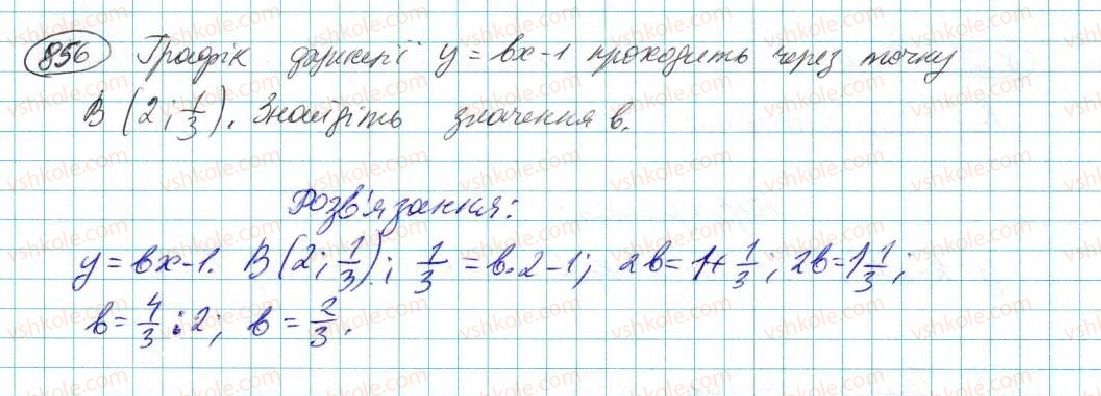 856 Графік функції y = bx - 1 проходить через точку
B (2; 1/3). Знайдіть значення b.
Розв'язання:
y = bx - 1. B (2; 1/3); 1/3 = b · 2 - 1; 2b = 1 + 1/3; 2b = 1 1/3;
b = 4/3 : 2; b = 2/3.